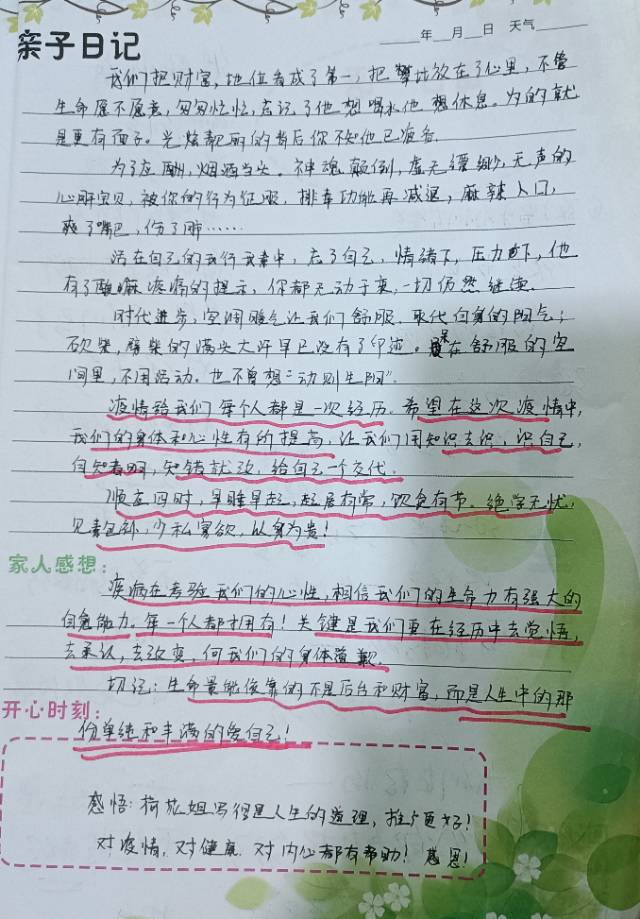 亲子日记
年 月 日 天气
我们把财富,地位看成了第一,把攀比放在了心里,不管
生命愿不愿意,匆匆忙忙,忘记了他想喝水他想休息。为的就
是更有面子。光炫靓丽的背后你不知他已疲惫.
为了应酬,烟酒当头。神魂颠倒,虚无缥缈,无声的
心肝宝贝,被你的行为征服,排毒功能再减退,麻辣入口,
爽了嘴巴,伤了肺……
活在自己的我行我素中,忘了自己,情绪下,压力下,他
有了酸麻疼痛的提示,你都无动于衷,一切仍然继续.
时代进步,空调暖气让我们舒服.取代自身的阳气;
砍柴,劈柴的满头大汗早已没有了印迹。呆在舒服的空
间里,不用活动。也不曾想"动则生阳".
疫情给我们每个人都是一次经历。希望在这次疫情中,
我们的身体和心性有所提高,让我们用知识去识,识自己,
自知者明,知错就改,给自己一个交代.
顺应四时,早睡早起,起居有常,饮食有节。绝学无忧,
见素包朴,少私寡欲,以身为贵!
家人感想:
疾病在考验我们的心性,相信我们的生命力有强大的
自愈能力。每一个人都拥有!关键是我们要在经历中去觉悟,
去承认,去改变,向我们的身体道歉.
切记:生命最能依靠的不是后台和财富,而是人生中的那
开心时刻:
份单纯和丰满的爱自己!
感悟:荷花姐写得是人生的道理,推广更好!
对疫情,对健康.对内心都有帮助!感恩!